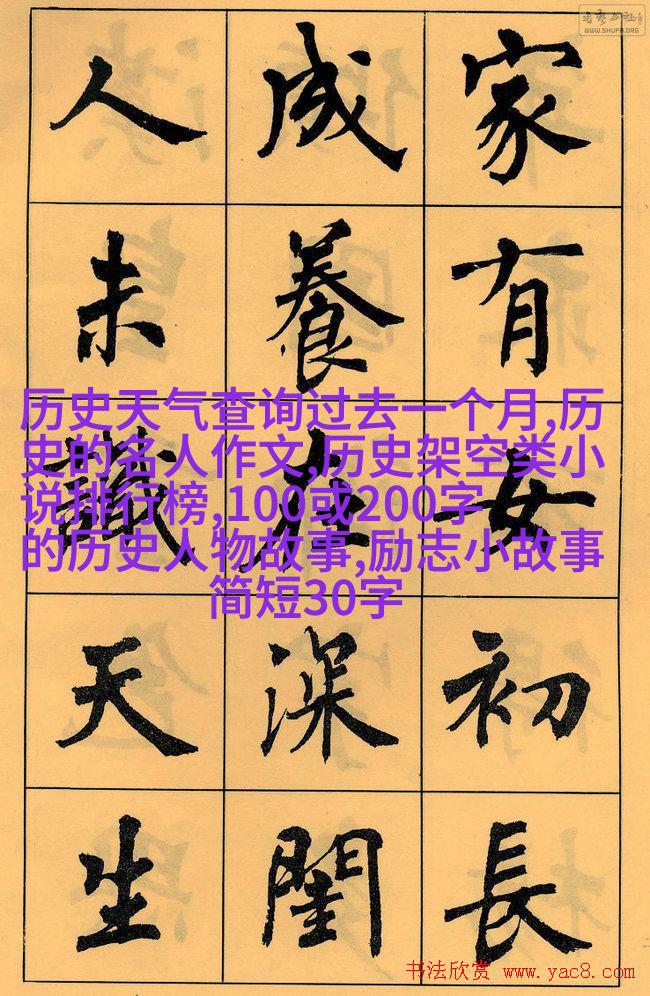 WWW.SHUFA.ORG
家有女初長
成養在深閨
人未識天生
历史天气查询过去一个月,历
史的名人作文,历史架空类小
说排行榜,100或200字
的历史人物故事,励志小故事
简短30字
书法欣赏 www.yac8.com